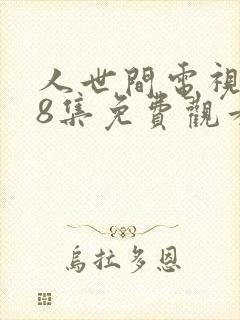 人世間電視
8集免費觀
烏拉多恩